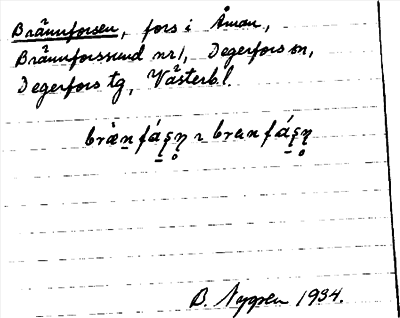 Brännforsen, fors i Åman,
Brännforssund nr 1, Degerfors sn,
Degerfors tg, Västerb. l.
bræ̀n fáʂn̥ ~ bræn fáʂn̥
B. Nygren 1934.